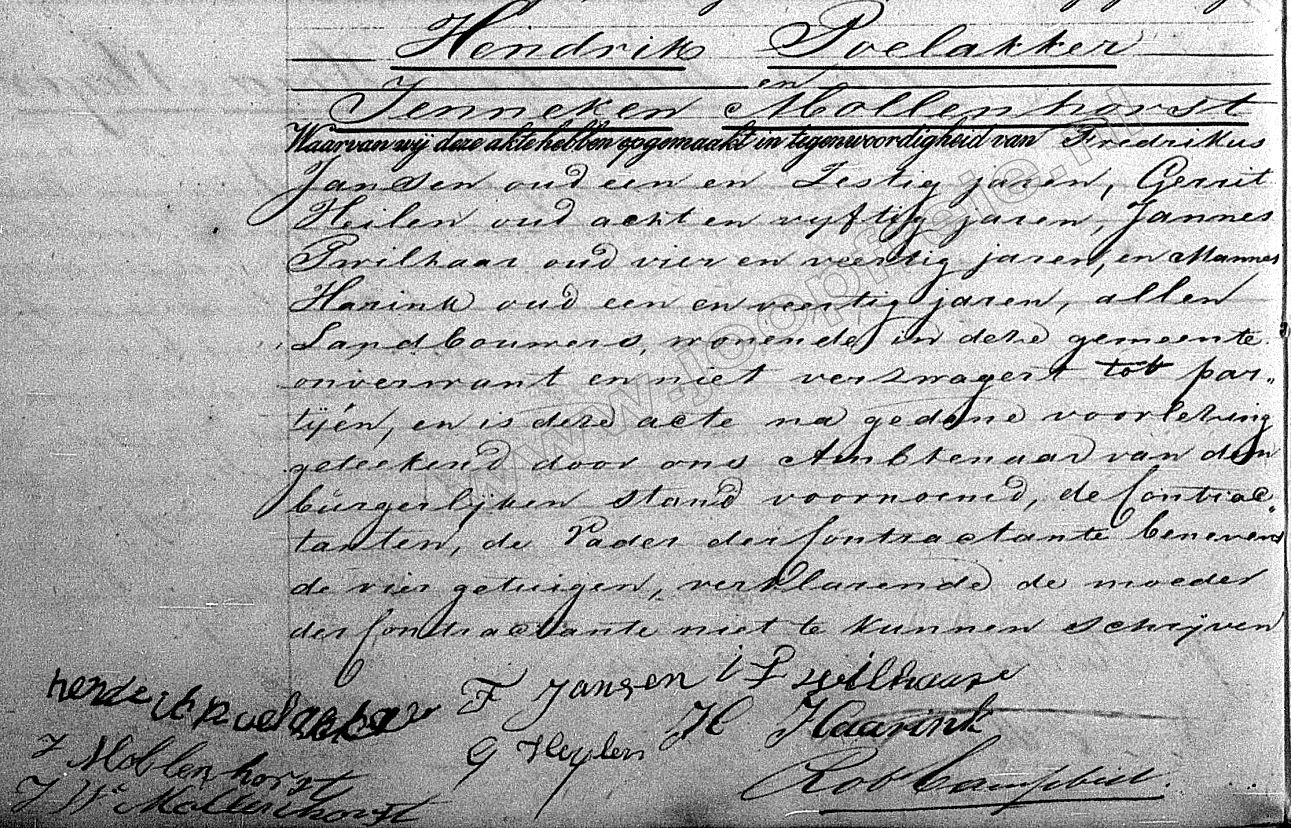 Hendrik Poelakker
en
Jenneken Mollenhorst
Waarvan wij deze akte hebben opgemaakt in tegenwoordigheid van Fredrikus
Jansen oud een en Zestig jaren, Gerrit
Heilen oud acht en vyftig jaren, Jannes
Pwilhaar oud vier en veertig jaren, en Mannes
Harink oud een en veertig jaren, allen
Landbouwers, wonende in deze gemeente
onverwant en niet verzwagert tot par„
tijén, en is deze acte na gedane voorlezing
geteekend door ons Ambtenaar van den
burgerlijken stand voornoemd, de contrac
tanten, de Vader der contractante benevens
de vier getuigen, verklarende de moeder
der contractante niet te kunnen schrijven
F Jansen
G Heylen
H Haarink
Rob Campbell
J Mollenhorst
J W Mollenhorst
www.joopfrie.nl